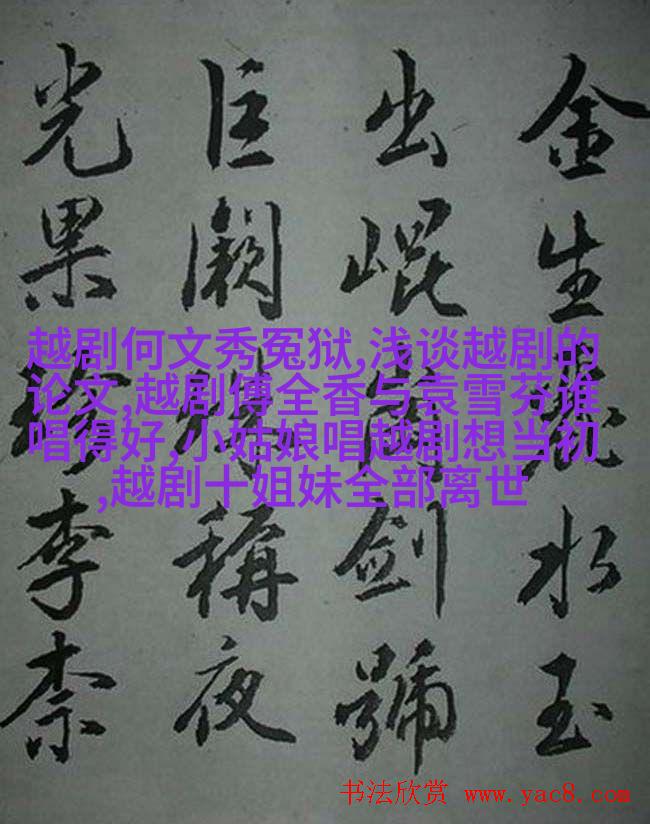 金生麗水玉
出崐岡劍號
巨闕珠稱夜
光果珍李柰
越剧何文秀冤狱,浅谈越剧的
论文,越剧傅全香与袁雪芬谁
唱得好,小姑娘唱越剧想当初
,越剧十姐妹全部离世
书法欣赏 www.yac8.com